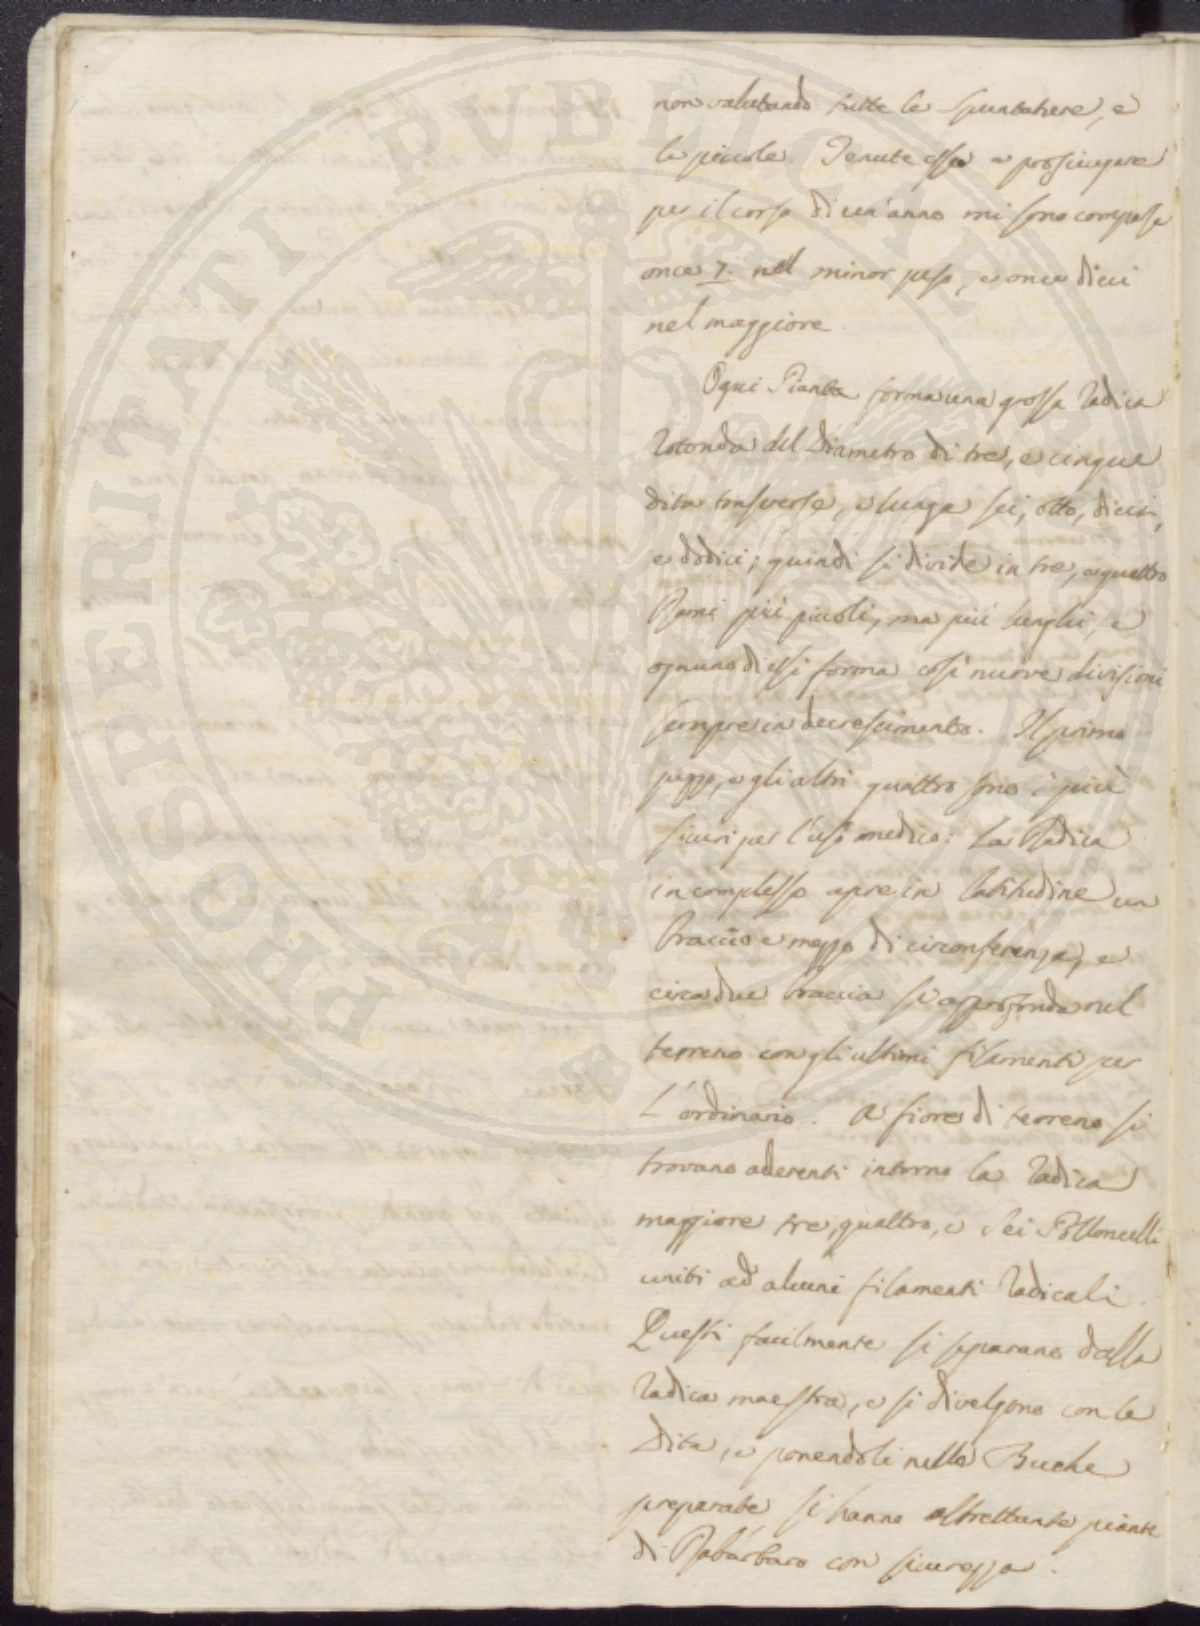 non valutando tutte le spuntature, e
le piccole. Tenute esse a prosciugare
per il corso di un'anno mi sono comparse
once 7. nel minor peso, e once dieci
nel maggiore.
Ogni Pianta forma una grossa Radica
Rotonda del Diametro di tre, e cinque
dita trasverse, e lunga sei, otto, dieci,
e dodici; quindi si divide in tre, o quattro
Rami più piccoli, ma più lunghi, e
ognuno di essi forma così nuove divisioni
sempre in decrescimento. Il primo
pezzo, e gli altri quattro sono i più
sicuri per l'uso medico: La Radica
in complesso apre in latitudine un
Braccio e mezzo di circonferenza, e
circa due braccia si approfonda nel
terreno con gli ultimi filamenti per
L'ordinario. A fiore di terreno si
trovano aderenti intorno la Radica
maggiore tre, quattro, e sei Polloncelli
uniti ad alcuni filamenti Radicali.
Questi facilmente si separano dalla
Radica maestra, e si divelgono con le
Dita, e ponendoli nelle Buche
preparate si hanno altrettante piante
di Rabarbaro con sicurezza.
PROSPERITATI PVBLICAE